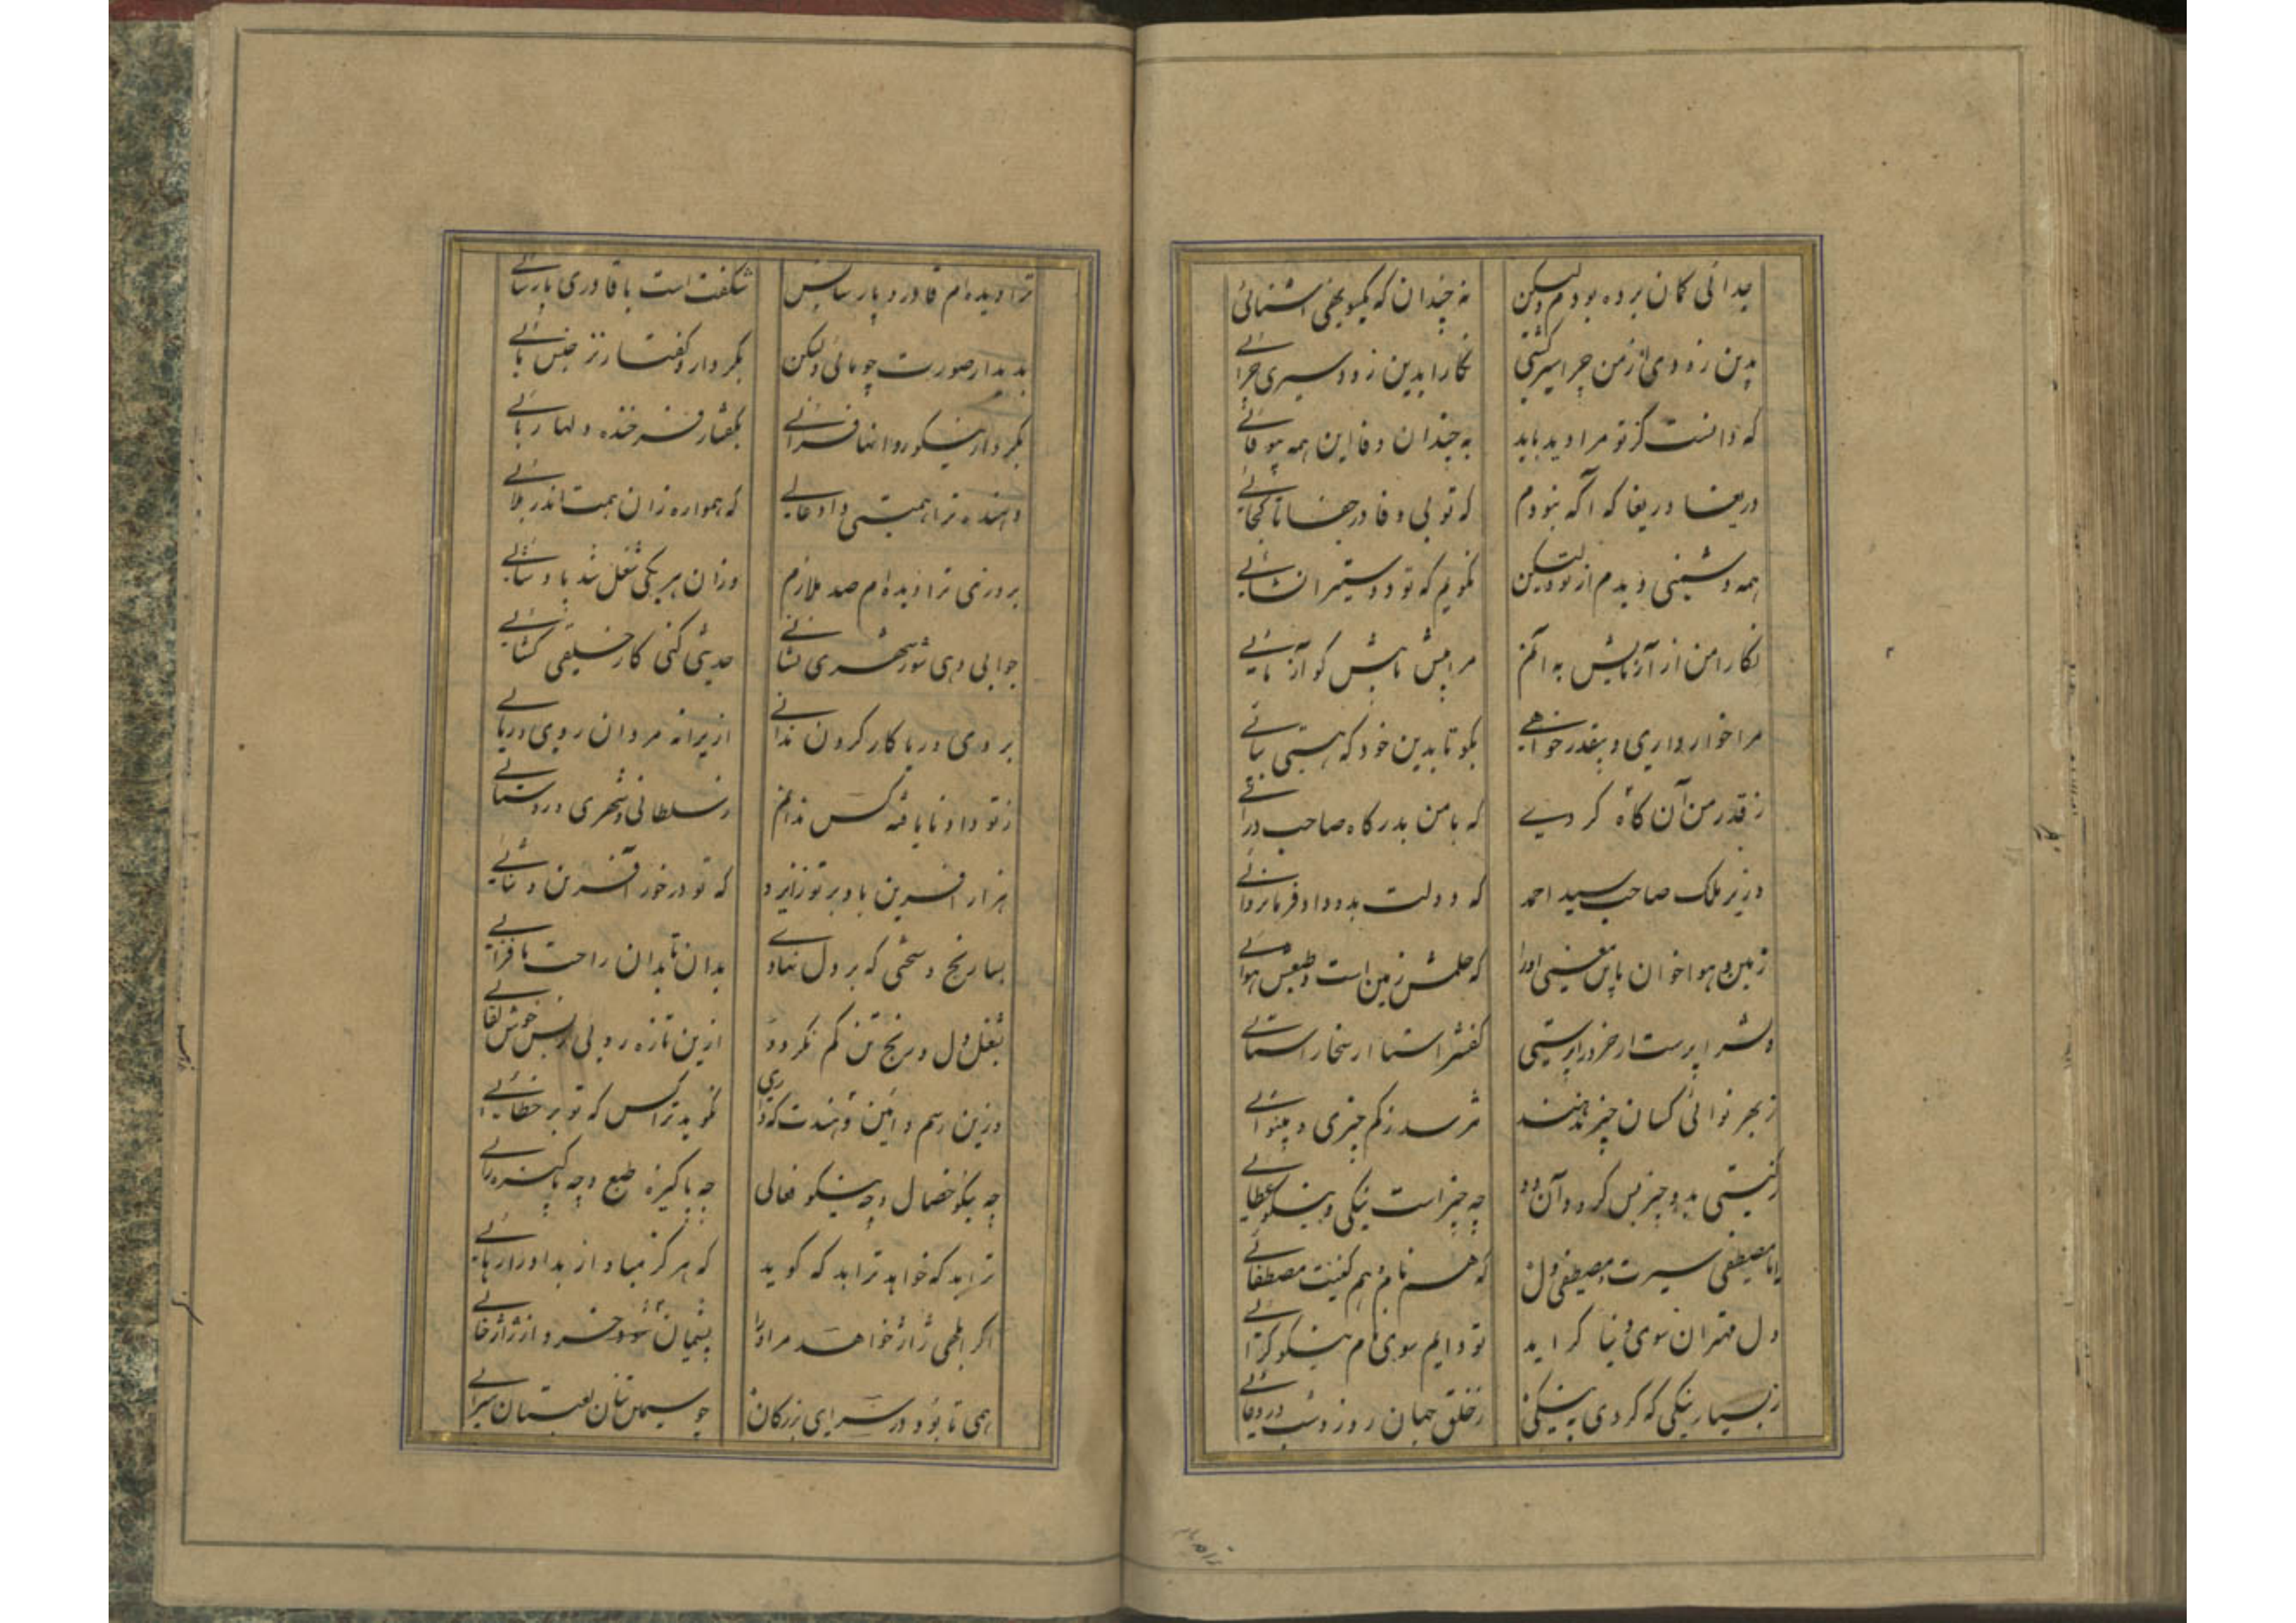 جدائی کمان برده بودم ولیکن نه چندان که یکسو نهی آشنائی
بدین زودی از من چرا سیر گشتی نگارا بدین زود سیری چرائی
که دانست کز تو مرا دید باید به چندان وفا این همه بیوفائی
دریغا دریغا که آگه نبودم که تو بی وفا در جفا تا کجائی
همه دشمنی دیدم از تو ولیکن نگویم که تو دوستی را نشائی
نگارا من از آزمایش به آیم مرا بیش تا بیش گو آزمائی
مرا خوار داری و بیقدر خواهی نگو تا بدین خو که هستی نیائی
ز قدر من آن گاه گردی که با من بدرگاه صاحب درآئی
وزیر ملک صاحب سید احمد که دولت بدو داد فرمانروائی
زمین و هوا خوان باین معنی او را که حلمش زمین است و طبعش هوائی
دلش را پرست ار خرد را پرستی کفش را ستا ار سخا را ستائی
ز بهر نوائی کسان چیز ندهند نترسد ز کم چیزی و بینوائی
ز گیتی بدو چیز بس کرد و آن دو چه چیز است نیکی و نیکو عطائی
ایا مصطفی سیرت و مصطفی دل که هم نام و هم کنیت مصطفائی
دل مهتران سوی دنیا گراید تو دایم سوی نام نیکو گرائی
ز بسیار نیکی که کردی به نیکی ز خلق جهان روز و شب در دعائی
ترا دیده‌ام قادر و پارسا بس شگفت است با قادری پارسائی
بدیدار صورت چو مائی ولیکن بکردار و گفتار نز جنس مائی
بکردار نیکو روانها فزائی بگفتار فرخنده دلها ربائی
دهنده ترا همتی داد عالی که همواره زان همت اندر بلائی
بروزی ترا دیده‌ام صد ملازم وزان هر یکی شغل شد پادشائی
جوابی دهی شور شهری نشانی حدیثی کنی کار خلقی گشائی
بروی و ریا کار کردن ندانی ازیرا نه مردان روی و ریائی
ز تو داد نایافته کس ندانم ز سلطانی و شهری و روستائی
هزار آفرین باد بر تو ز ایزد که تو در خور آفرین و ثنائی
بسا رنج و سختی که بر دل نهادی بدان تا بدان راحت ما فزائی
بشغل دل و رنج تن کم نگردد ازین تازه روئی ازین خوش لقائی
وزین رسم و آئین و هندت که داری نگوید ترا کس که تو بر خطائی
چه نیکو خصال و چه نیکو فعالی چه پاکیزه طبع و چه پاکیزه رائی
ترا بد که خواهد ترا بد که گوید که هرگز مباد از بد او را رهائی
اگر ابلهی ژاژ خواهد مر او را پشیمان شود خسرو از ژاژ خائی
همی تا بود در سرای بزرگان چو سیمین بتان لعبتان سرائی